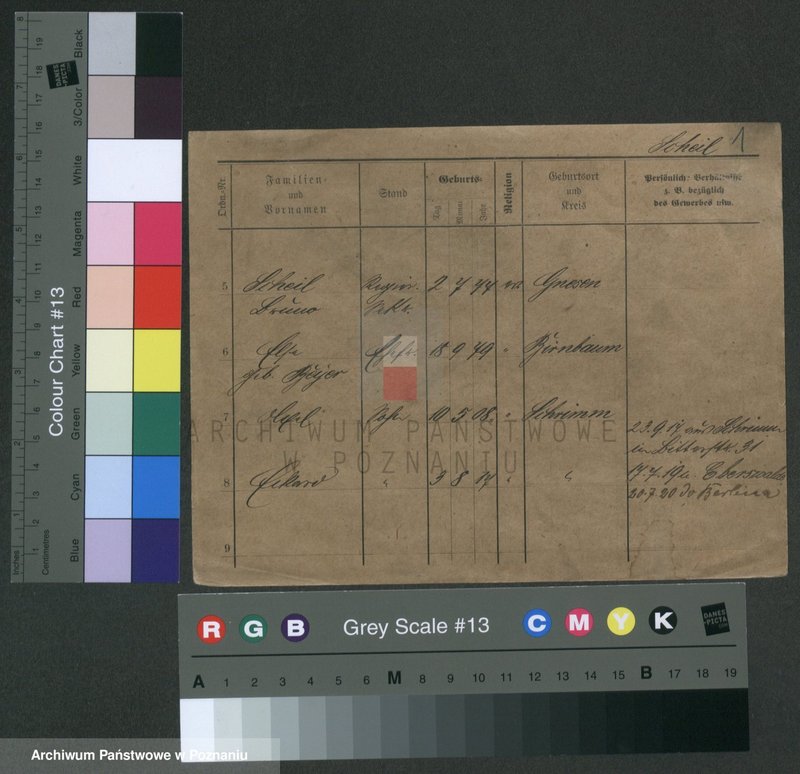 Scheil 1
Ordn.-Nr.
Familien-
und
Vornamen
Stand
Geburts-
Tag
Monat
Jahr
Religion
Geburtsort
und
Kreis
Persönlich. Verhältnisse
z. B. bezüglich
des Gewerbes usw.
5 Scheil 2 7 77 Gnesen
Bruno
6 Else Ehefr. 18 9 79 " Birnbaum
geb.
7 Sohn 19 5 08 " Schrimm
23.9.17 aus Schrimm
31
8 Eckard " 3 8 14 " "
17.7.19 n. Eberswalde
20.7.20 do Berlina
9
ARCHIWUM PAŃSTWOWE
W POZNANIU
Colour Chart #13
Black
3/Color
White
Magenta
Red
Yellow
Green
Cyan
Blue
Inches
1 2 3 4 5 6 7 8
Centimetres
1 2 3 4 5 6 7 8 9 10 11 12 13 14 15 16 17 18 19
DANES
-PICTA
.COM
R G B Grey Scale #13 C M Y K
DANES
-PICTA
.COM
A 1 2 3 4 5 6 M 8 9 10 11 12 13 14 15 B 17 18 19
Archiwum Państwowe w Poznaniu